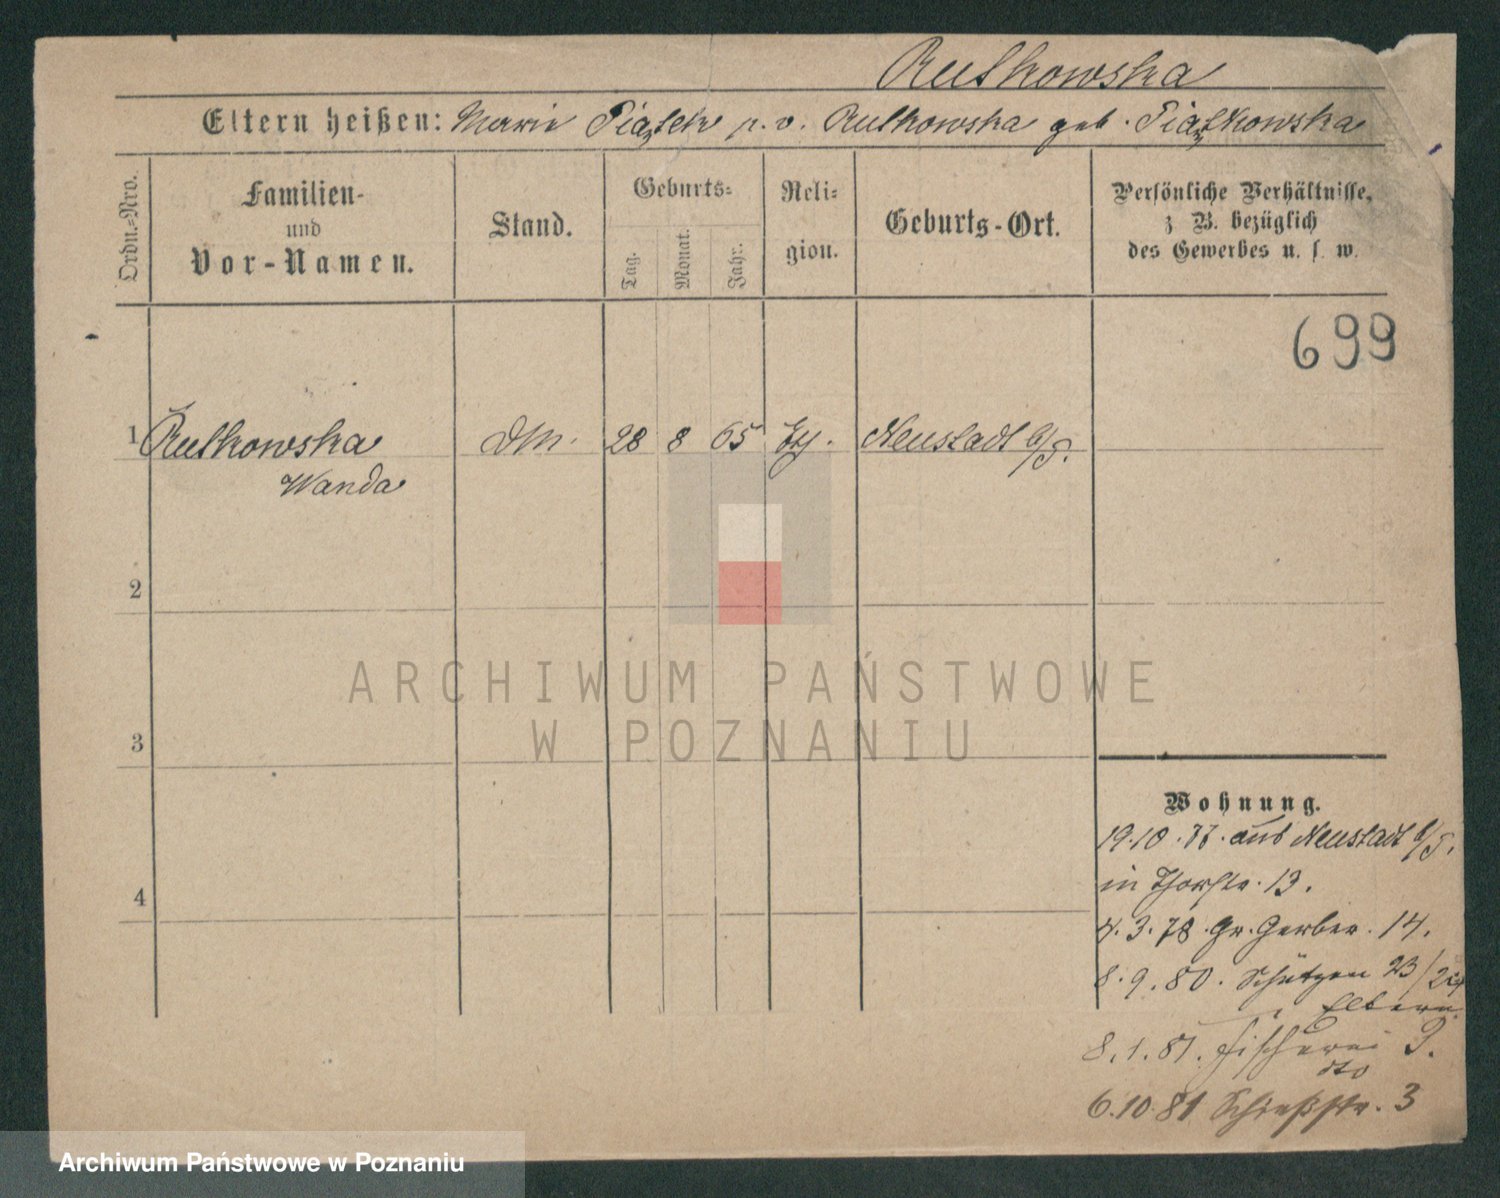 Rutkowska
Eltern heißen: Marie Piątek p. v. Rutkowska geb. Piątkowska
Ordn.=Nro.
Familien-
und
Vor-Namen.
Stand.
Geburts=
Tag.
Monat.
Jahr.
Reli=
gion.
Geburts-Ort.
Persönliche Verhältnisse,
z B. bezüglich
des Gewerbes u. s. w.
699
1 Rutkowska 28 8 65 Neustadt b/P.
Wanda
2
3
4
Wohnung.
19.10.77. aus Neustadt b/P.
in Thorstr. 13.
4.3.78. Gr. Gerber. 14.
8.9.80. Schützen 23/24
Eltern
8.1.81. Fischerei 9.
dto
6.10.81 Schießstr. 3
ARCHIWUM PAŃSTWOWE
W POZNANIU
Archiwum Państwowe w Poznaniu